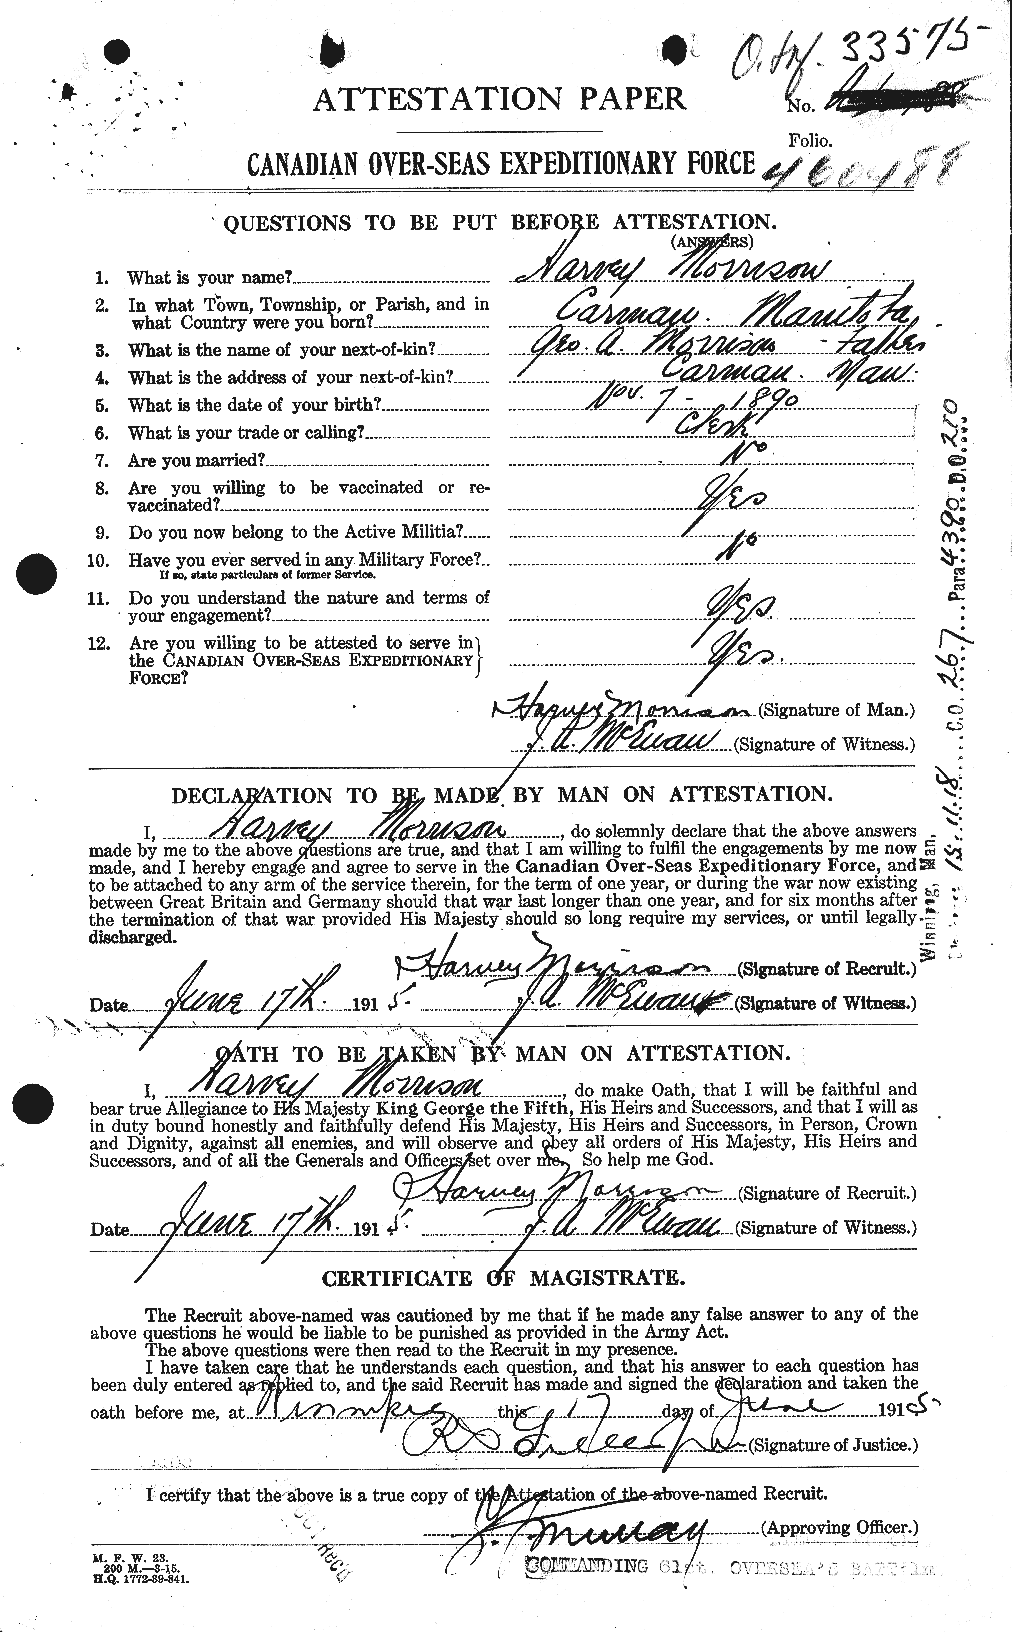 O.S.N. 33575-
ATTESTATION PAPER
No.
Folio.
CANADIAN OVER-SEAS EXPEDITIONARY FORCE 460488
QUESTIONS TO BE PUT BEFORE ATTESTATION.
(ANSWERS)
1. What is your name? Harvey Morrison
2. In what Town, Township, or Parish, and in
what Country were you born? Carman. Manitoba,
3. What is the name of your next-of-kin? Geo. A. Morrison - Father
4. What is the address of your next-of-kin? Carman. Man.
5. What is the date of your birth? Nov. 7 - 1890
6. What is your trade or calling? Clerk
7. Are you married? No
8. Are you willing to be vaccinated or re-
vaccinated? Yes
9. Do you now belong to the Active Militia? No
10. Have you ever served in any Military Force?
If so, state particulars of former Service.
11. Do you understand the nature and terms of
your engagement? Yes.
12. Are you willing to be attested to serve in
the CANADIAN OVER-SEAS EXPEDITIONARY
FORCE? Yes.
Harvey Morrison (Signature of Man.)
J. A. McEwan (Signature of Witness.)
DECLARATION TO BE MADE BY MAN ON ATTESTATION.
I, Harvey Morrison, do solemnly declare that the above answers
made by me to the above questions are true, and that I am willing to fulfil the engagements by me now
made, and I hereby engage and agree to serve in the Canadian Over-Seas Expeditionary Force, and
to be attached to any arm of the service therein, for the term of one year, or during the war now existing
between Great Britain and Germany should that war last longer than one year, and for six months after
the termination of that war provided His Majesty should so long require my services, or until legally
discharged.
Harvey Morrison (Signature of Recruit.)
Date June 17th. 1915. J. A. McEwan (Signature of Witness.)
OATH TO BE TAKEN BY MAN ON ATTESTATION.
I, Harvey Morrison, do make Oath, that I will be faithful and
bear true Allegiance to His Majesty King George the Fifth, His Heirs and Successors, and that I will as
in duty bound honestly and faithfully defend His Majesty, His Heirs and Successors, in Person, Crown
and Dignity, against all enemies, and will observe and obey all orders of His Majesty, His Heirs and
Successors, and of all the Generals and Officers set over me. So help me God.
Harvey Morrison (Signature of Recruit.)
Date June 17th. 1915. J. A McEwan (Signature of Witness.)
CERTIFICATE OF MAGISTRATE.
The Recruit above-named was cautioned by me that if he made any false answer to any of the
above questions he would be liable to be punished as provided in the Army Act.
The above questions were then read to the Recruit in my presence.
I have taken care that he understands each question, and that his answer to each question has
been duly entered as replied to, and the said Recruit has made and signed the declaration and taken the
oath before me, at Winnipeg this 17 day of June 1915
(Signature of Justice.)
I certify that the above is a true copy of the Attestation of the above-named Recruit.
Murray (Approving Officer.)
COMMANDING 61st. OVERSEA'S BATT'LN.
M. F. W. 23.
200 M.—3-15.
H.Q. 1772-39-841.
Winnipeg, Man.
15.11.18 C.O. 267 Para 4390 D.O. 210